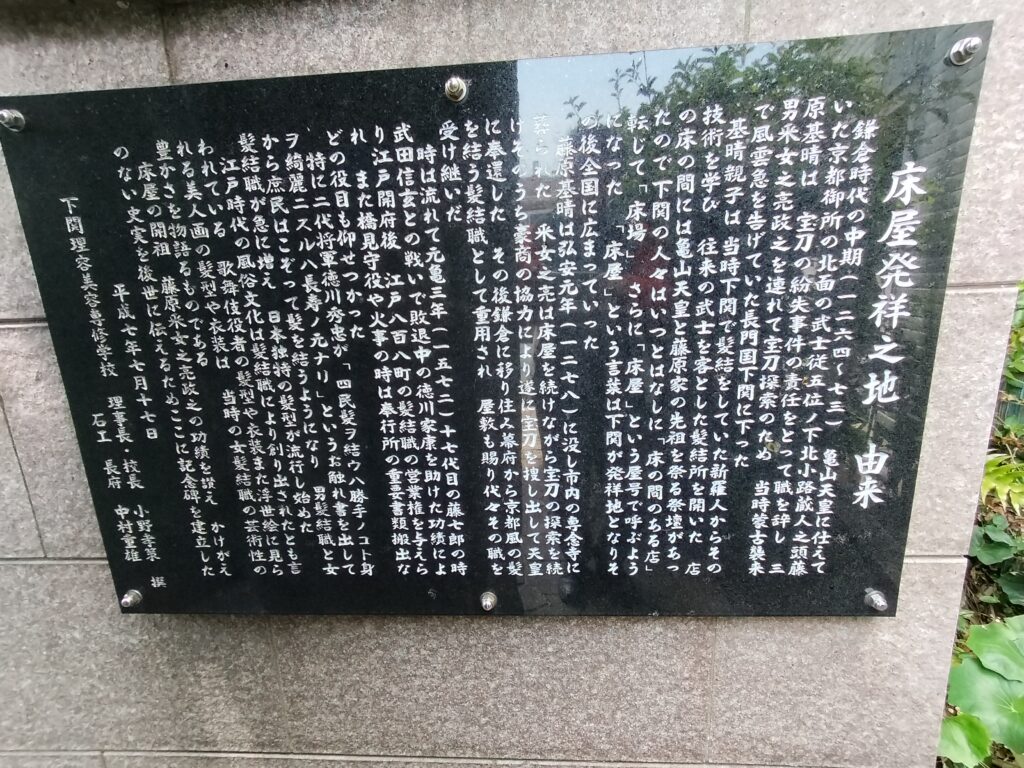 床屋発祥之地　由来
鎌倉時代の中期(一二六四〜七三)　亀山天皇に仕えて
いた京都御所の北面の武士従五位ノ下北小路蔵人之頭藤
原基晴は　宝刀の紛失事件の責任をとって職を辞し　三
男采女之亮政之を連れて宝刀探索のため　当時蒙古襲来
で風雲急を告げていた長門国下関に下った
基晴親子は　当時下関で髪結をしていた新羅人からその
技術を学び　往来の武士を客とした髪結所を開いた　店
の床の間には亀山天皇と藤原家の先祖を祭る祭壇があっ
たので下関の人々はいつとはなしに「床の間のある店」
転じて「床場」　さらに「床屋」という屋号で呼ぶよう
になった　「床屋」という言葉は下関が発祥地となりそ
の後全国に広まっていった
藤原基晴は弘安元年(一二七八)に没し市内の専念寺に
葬られた　采女之亮は床屋を続けながら宝刀の探索を続
けそのうち豪商の協力により遂に宝刀を捜し出して天皇
に奉還した　その後鎌倉に移り住み幕府から京都風の髪
を結う髪結職として重用され　屋敷も賜り代々その職を
受け継いだ
時は流れて元亀三年(一五七二)十七代目の藤七郎の時
武田信玄との戦いで敗退中の徳川家康を助けた功績によ
り江戸開府後　江戸八百八町の髪結職の営業権を与えら
れ　また橋見守役や火事の時は奉行所の重要書類搬出な
どの役目も仰せつかった
特に二代将軍徳川秀忠が「四民髪ヲ結ウハ勝手ノコト身
ヲ綺麗ニスルハ長寿ノ元ナリ」というお触れ書を出して
から庶民はこぞって髪を結うようになり　男髪結職と女
髪結職が急に増え　日本独特の髪型が流行し始めた
江戸時代の風俗文化は髪結職により創り出されたとも言
われている　歌舞伎役者の髪型や衣装また浮世絵に見ら
れる美人画の髪型や衣装は　当時の女髪結職の芸術性の
豊かさを物語るものである
床屋の開祖　藤原采女之亮政之の功績を讃え　かけがえ
のない史実を後世に伝えるためここに記念碑を建立した
平成七年七月十七日
下関理容美容専修学校　理事長・校長　小野孝策　撰
石工　長府　中村重雄